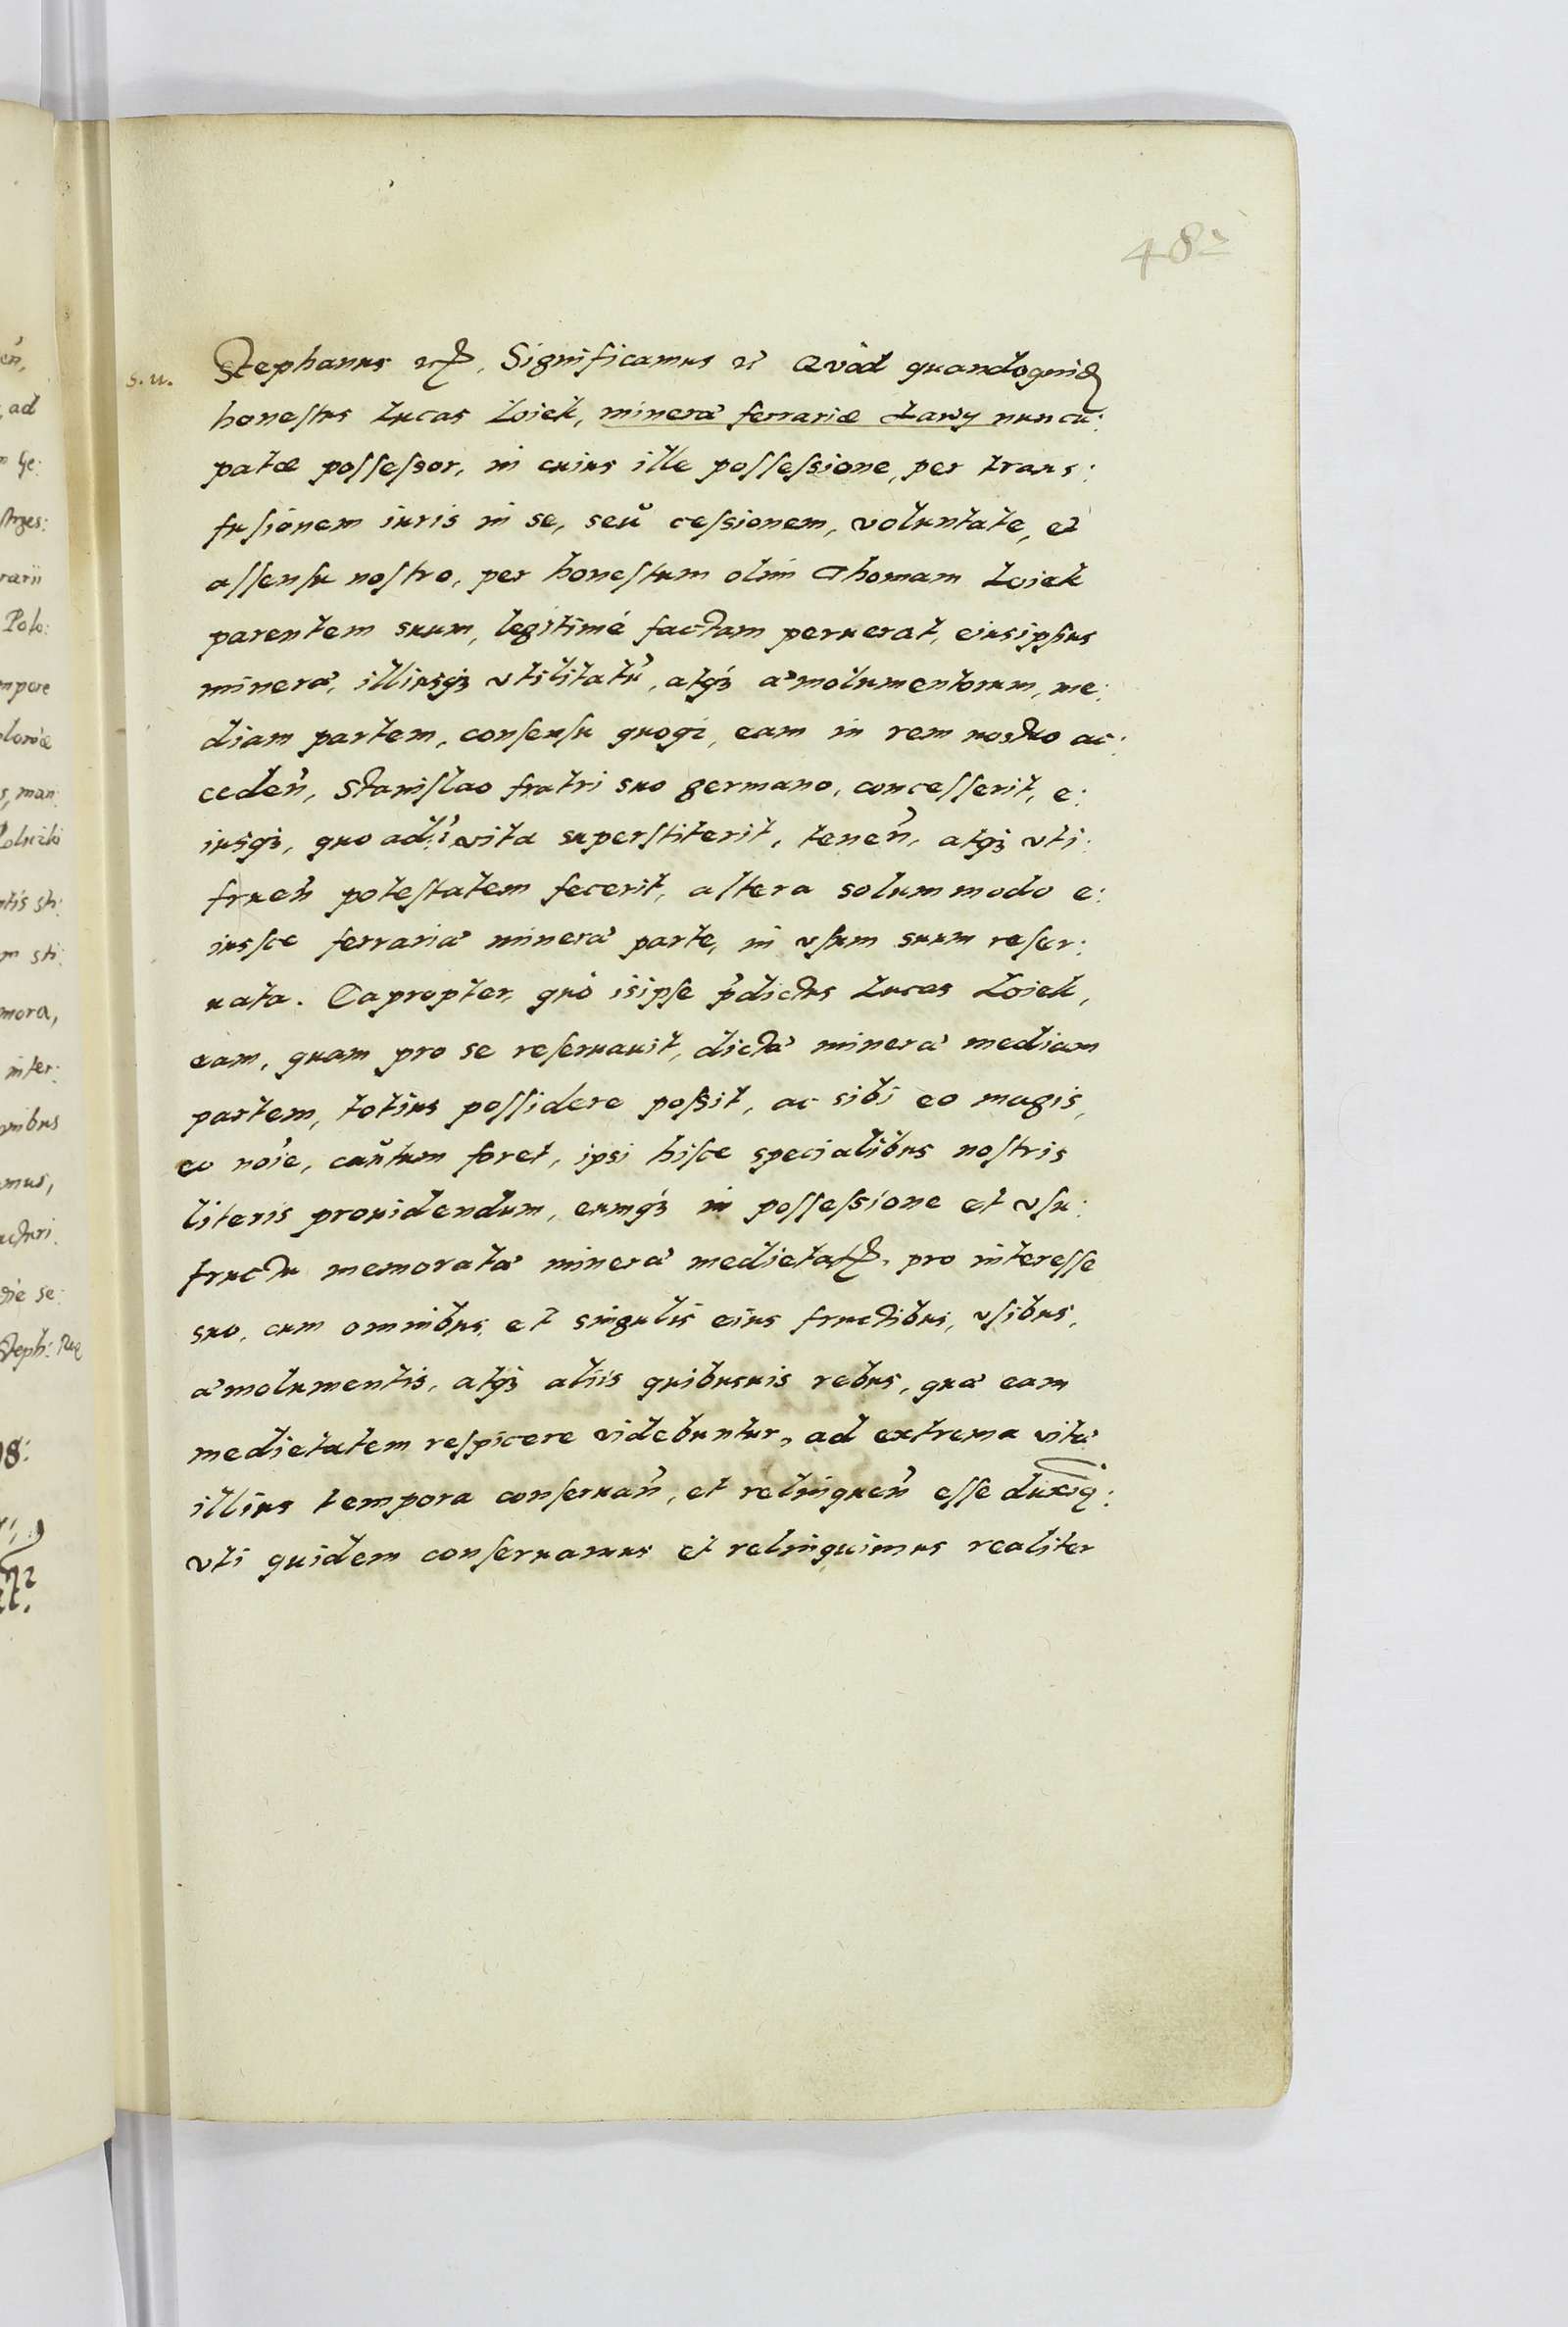 48
s. u. Stephanus etc. Significamus etc Quòd quandoquidē
honestus Lucas Łoiek, mineræ ferrariæ Ławy nuncu:
patæ possessor, in cuius ille possessione, per trans:
fusionem iuris in se, seŭ cessionem, voluntate, et
assensu nostro, per honestum olim Thomam Łoiek
parentem suum, legitimé factam peruerat, eiusipsius
mineræ, illiusq3 vtilitatū, atq3 æmolumentorum, me:
diam partem, consensu quoq3, eam in rem nostro ac:
ceden̄, Stanislao fratri suo germano, concesserit, e:
iusq3, quo ad: vita superstiterit, tenen̄, atq3 vti:
fruen̄ potestatem fecerit, altera solummodo e:
iusce ferrariæ mineræ parte, in vsum suum reser:
uata. Eapropter, quò isipse p̄dictus Lucas Łoiek,
eam, quam pro se reseruauit, dictæ mineræ mediam
partem, totius possidere possit, ac sibi eo magis,
eo noīe, caŭtum foret, ipsi hisce specialibus nostris
literis prouidendum, eumq3 in possessione et vsu:
fructu memoratæ mineræ medietatis, pro interesse
suo, cum omnibus, et singulis eius fructibus, vsibus,
æmolumentis, atq3 aliis quibusuis rebus, quæ eam
medietatem respicere videbuntur, ad extrema vitæ
illius tempora conseruan̄, et relinquen̄ esse duxiq:
vti quidem conseruamus et relinquimus realiter
en̄,
ad
Ge:
rarii
Polo:
mpore
s, man:
ntis sti:
m sti:
mora,
inter:
mnibus
mus,
die se:
Steph: Rex